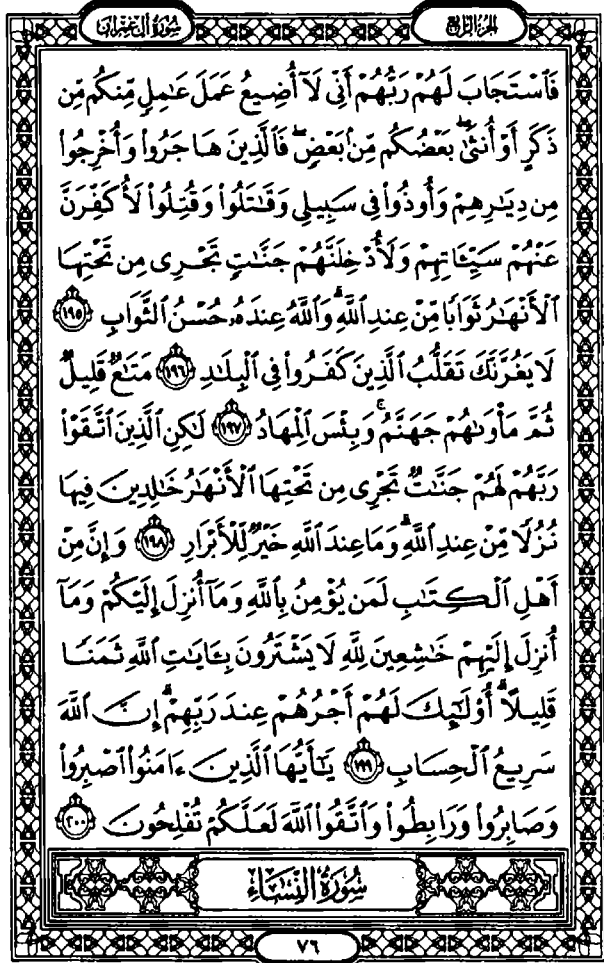 سُورَةُ آلِ عِمْرَانَ الجُزْءُ الرَّابِعُ
فَٱسْتَجَابَ لَهُمْ رَبُّهُمْ أَنِّى لَآ أُضِيعُ عَمَلَ عَـٰمِلٍ مِّنكُم مِّن
ذَكَرٍ أَوْ أُنثَىٰ ۖ بَعْضُكُم مِّنۢ بَعْضٍ ۖ فَٱلَّذِينَ هَاجَرُوا۟ وَأُخْرِجُوا۟
مِن دِيَـٰرِهِمْ وَأُوذُوا۟ فِى سَبِيلِى وَقَـٰتَلُوا۟ وَقُتِلُوا۟ لَأُكَفِّرَنَّ
عَنْهُمْ سَيِّـَٔاتِهِمْ وَلَأُدْخِلَنَّهُمْ جَنَّـٰتٍ تَجْرِى مِن تَحْتِهَا
ٱلْأَنْهَـٰرُ ثَوَابًا مِّنْ عِندِ ٱللَّهِ ۗ وَٱللَّهُ عِندَهُۥ حُسْنُ ٱلثَّوَابِ ١٩٥
لَا يَغُرَّنَّكَ تَقَلُّبُ ٱلَّذِينَ كَفَرُوا۟ فِى ٱلْبِلَـٰدِ ١٩٦ مَتَـٰعٌ قَلِيلٌ
ثُمَّ مَأْوَىٰهُمْ جَهَنَّمُ ۚ وَبِئْسَ ٱلْمِهَادُ ١٩٧ لَـٰكِنِ ٱلَّذِينَ ٱتَّقَوْا۟
رَبَّهُمْ لَهُمْ جَنَّـٰتٌ تَجْرِى مِن تَحْتِهَا ٱلْأَنْهَـٰرُ خَـٰلِدِينَ فِيهَا
نُزُلًا مِّنْ عِندِ ٱللَّهِ ۗ وَمَا عِندَ ٱللَّهِ خَيْرٌ لِّلْأَبْرَارِ ١٩٨ وَإِنَّ مِنْ
أَهْلِ ٱلْكِتَـٰبِ لَمَن يُؤْمِنُ بِٱللَّهِ وَمَآ أُنزِلَ إِلَيْكُمْ وَمَآ
أُنزِلَ إِلَيْهِمْ خَـٰشِعِينَ لِلَّهِ لَا يَشْتَرُونَ بِـَٔايَـٰتِ ٱللَّهِ ثَمَنًا
قَلِيلًا ۗ أُو۟لَـٰٓئِكَ لَهُمْ أَجْرُهُمْ عِندَ رَبِّهِمْ ۗ إِنَّ ٱللَّهَ
سَرِيعُ ٱلْحِسَابِ ١٩٩ يَـٰٓأَيُّهَا ٱلَّذِينَ ءَامَنُوا۟ ٱصْبِرُوا۟
وَصَابِرُوا۟ وَرَابِطُوا۟ وَٱتَّقُوا۟ ٱللَّهَ لَعَلَّكُمْ تُفْلِحُونَ ٢٠٠
سُورَةُ النِّسَاءِ
٧٦